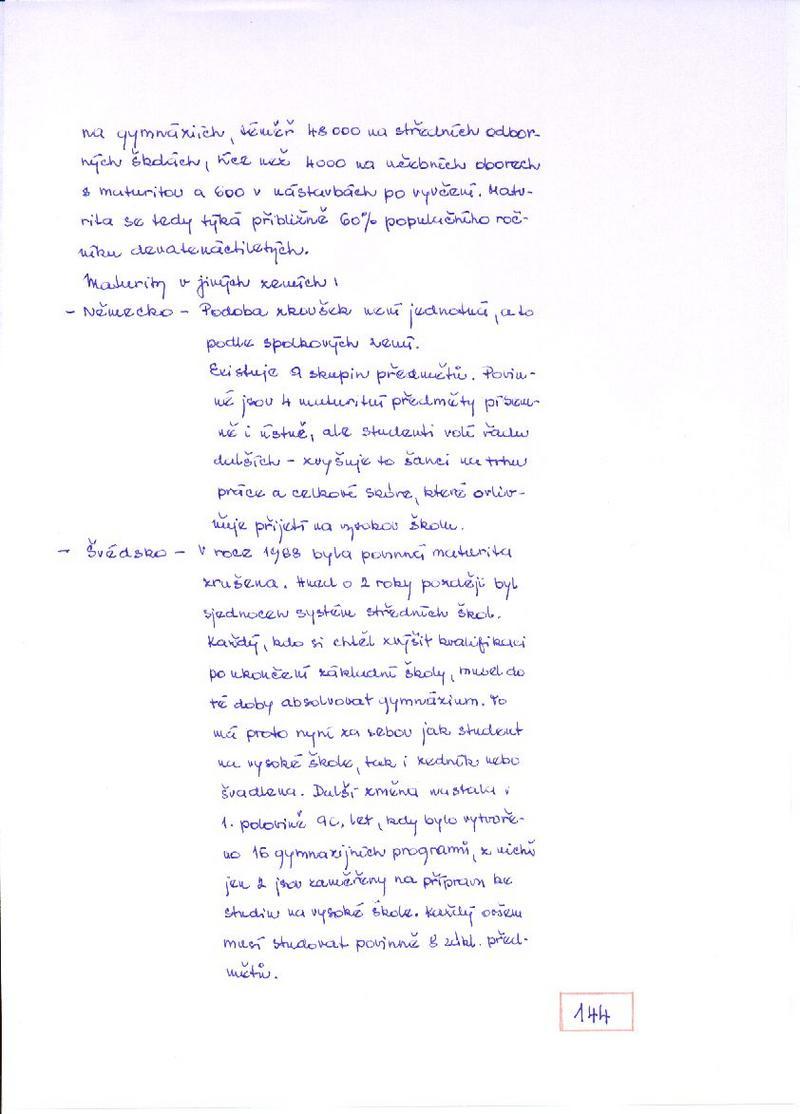 na gymnáziích, téměř 48 000 na středních odbor-
ných školách, více než 4000 na učebních oborech
s maturitou a 600 v nástavbách po vyučení. Matu-
rita se tedy týká přibližně 60% populačního roč-
níku devatenáctiletých.
Maturity v jiných zemích:
- Německo - Podoba zkoušek není jednotná, a to
podle spolkových zemí.
Existuje 9 skupin předmětů. Povin-
né jsou 4 maturitní předměty písem-
ně i ústně, ale studenti volí řadu
dalších - zvyšuje to šanci na trhu
práce a celkové skóre, které ovliv-
ňuje přijetí na vysokou školu.
- Švédsko - V roce 1968 byla povinná maturita
zrušena. Hned o 2 roky později byl
sjednocen systém středních škol.
Každý, kdo si chtěl zvýšit kvalifikaci
po ukončení základní školy, musel do
té doby absolvovat gymnázium. To
má proto nyní za sebou jak student
na vysoké škole, tak i zedník nebo
švadlena. Další změna nastala v
1. polovině 90. let, kdy bylo vytvoře-
no 16 gymnazijních programů, z nichž
jen 2 jsou zaměřeny na přípravu ke
studiu na vysoké škole. Každý ovšem
musí studovat povinně 8 zákl. před-
mětů.
144